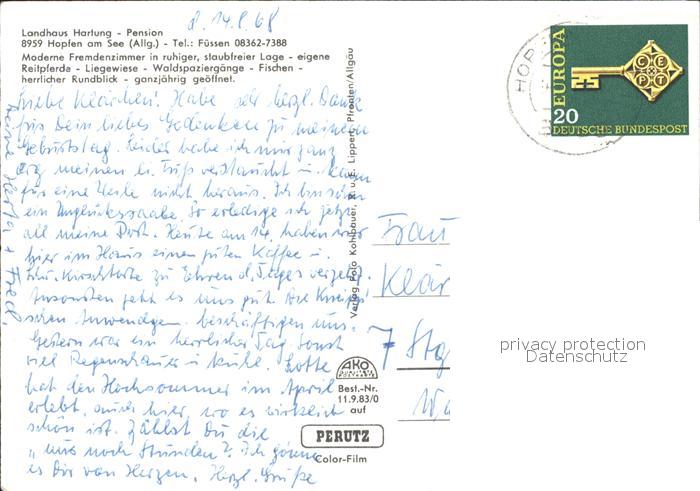 d. 14.8.68
Landhaus Hartung - Pension
8959 Hopfen am See (Allg.) - Tel.: Füssen 08362-7388
Moderne Fremdenzimmer in ruhiger, staubfreier Lage - eigene
Reitpferde - Liegewiese - Waldspaziergänge - Fischen -
herrlicher Rundblick - ganzjährig geöffnet.
Liebe Klärchen! Habe sehr herzl. Dank
für Dein liebes Gedenken zu meinem
Geburtstag. Leider habe ich mir ganz
arg meinen li. Fuß verstaucht u. kann
für eine Weile nicht heraus. Ich bin schon
ein Unglücksrabe. So erledige ich jetzt
all meine Post. Heute am 14. haben wir
hier im Haus einen guten Kaffee u.
Kirschtorte zu Ehren d. Tages
Ansonsten geht es uns gut. Die Kneipp'
schen Anwendgen. beschäftigen uns.
Gestern war ein herrlicher Tag sonst
viel Regenschauer u. kühl. Lotte
hat den Hochsommer im April
erlebt, auch hier, wo es wirklich
schön ist. Zählst Du die
" nur noch Stunden"? Ich gönne
es Dir von Herzen. Herzl. Grüße
Deine Herta + Fred.
Verlag Foto Kohlbauer, R. u. E. Lippert, Pfronten/Allgäu
AKO
Best.-Nr.
11.9.83/0
auf
PERUTZ
Color-Film
Frau
Klär
7 Stg
HOP
EUROPA
CEPT
20
DEUTSCHE BUNDESPOST
privacy protection
Datenschutz